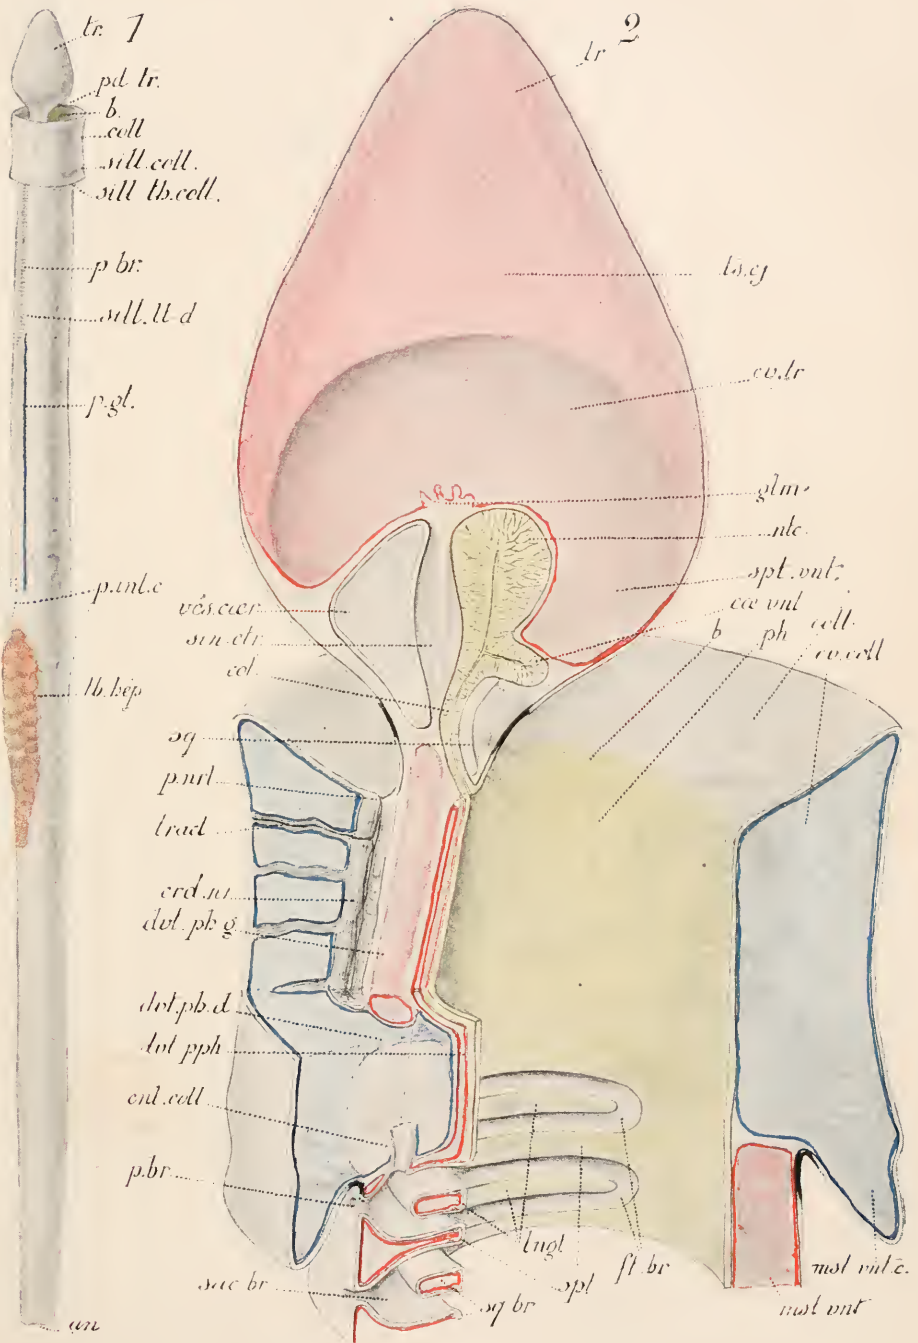 tr. 1
pd tr.
b.
coll
sill.coll.
sill tb.coll.
p br.
sill.lt-d
p.gt.
p.int.c
lb.hép
an
2
tr
ts.cj
cv.tr
glm.
ntc.
spt.vnt.
cœ vnt
b
ph
coll.
cv.coll
vés.cœr
sin.ctr.
col.
sq
p.nrl
tract
crd.nr
dvt.ph.g
dvt.ph.d
dvt pph
cnl.coll
p.br
sac br
lngt
spt
ft.br
sq br
mst vnt.c.
mst vnt